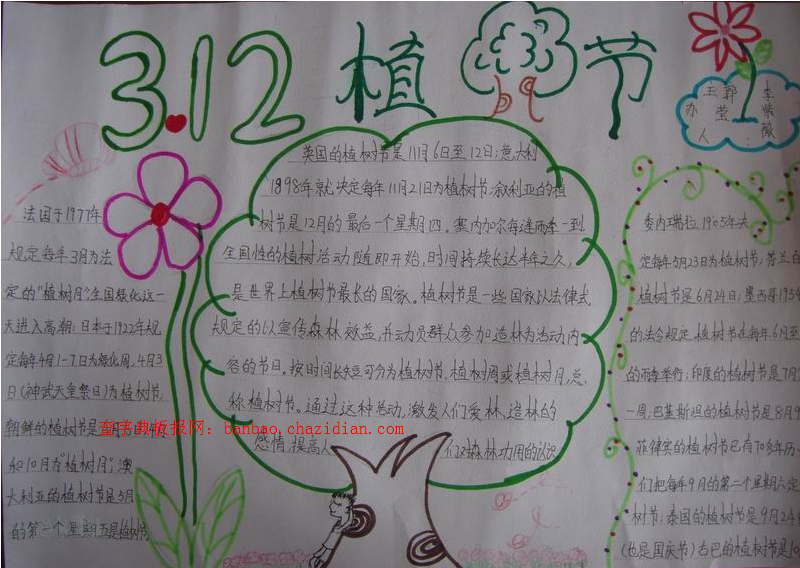 3.12 植树节
王郭李
莹紫
办薇
人:
法国于1977年
规定每年3月为法
定的“植树月”全国绿化这一
天进入高潮;日本于1922年规
定每年4月1-7日为绿化周,4月3
日(神武天皇祭日)为植树节,
朝鲜的植树节是
和10月为“植树月”;澳
大利亚的植树节是5月
的第一个星期五是植树节
英国的植树节是11月6日至12日;意大利
1898年就决定每年11月21日为植树节;叙利亚的植
树节是12月的最后一个星期四。塞内加尔每逢雨季一到
全国性的植树活动随即开始,时间持续长达半年之久,
是世界上植树节最长的国家。植树节是一些国家以法律式
规定的以宣传森林效益,并动员群众参加造林为活动内
容的节日。按时间长短可分为植树节,植树周或植树月,总
称植树节。通过这种活动,激发人们爱林、造林的
感情,提高人们对森林功用的认识
委内瑞拉1905年决
定每年5月23日为植树节;芬兰白
植树节是6月24日;墨西哥195
的法令规定,植树节在每年6月至
的雨季举行;印度的植树节是7月
一周;巴基斯坦的植树节是8月9
菲律宾的植树节已有70多年历
们把每年9月的第二个星期六定
树节;泰国的植树节是9月24
(也是国庆节)古巴的植树节是10
查字典板报网:banbao.chazidian.com